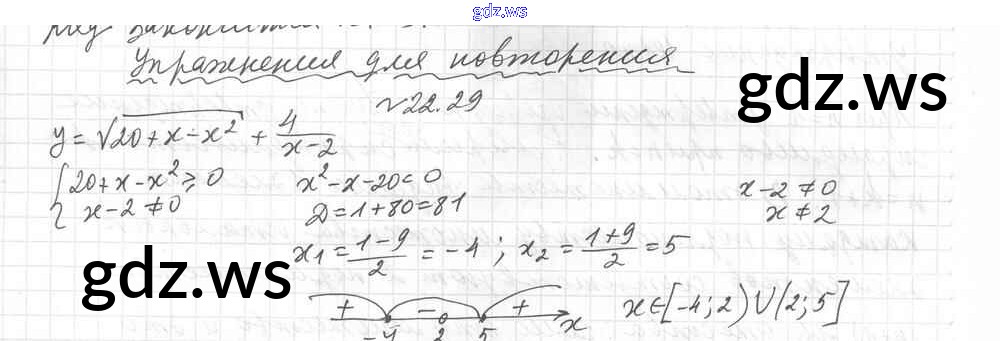 gdz.ws
Упражнения для повторения
gdz.ws
№22.29
y = √(20+x-x²) + 4/(x-2)
{ 20+x-x² ≥ 0
x-2 ≠ 0
x²-x-20 < 0
D=1+80=81
x-2 ≠ 0
x ≠ 2
x₁ = (1-9)/2 = -4 ; x₂ = (1+9)/2 = 5
gdz.ws
+ - + 
-4 2 5 x
x∈[-4;2)∪(2;5]